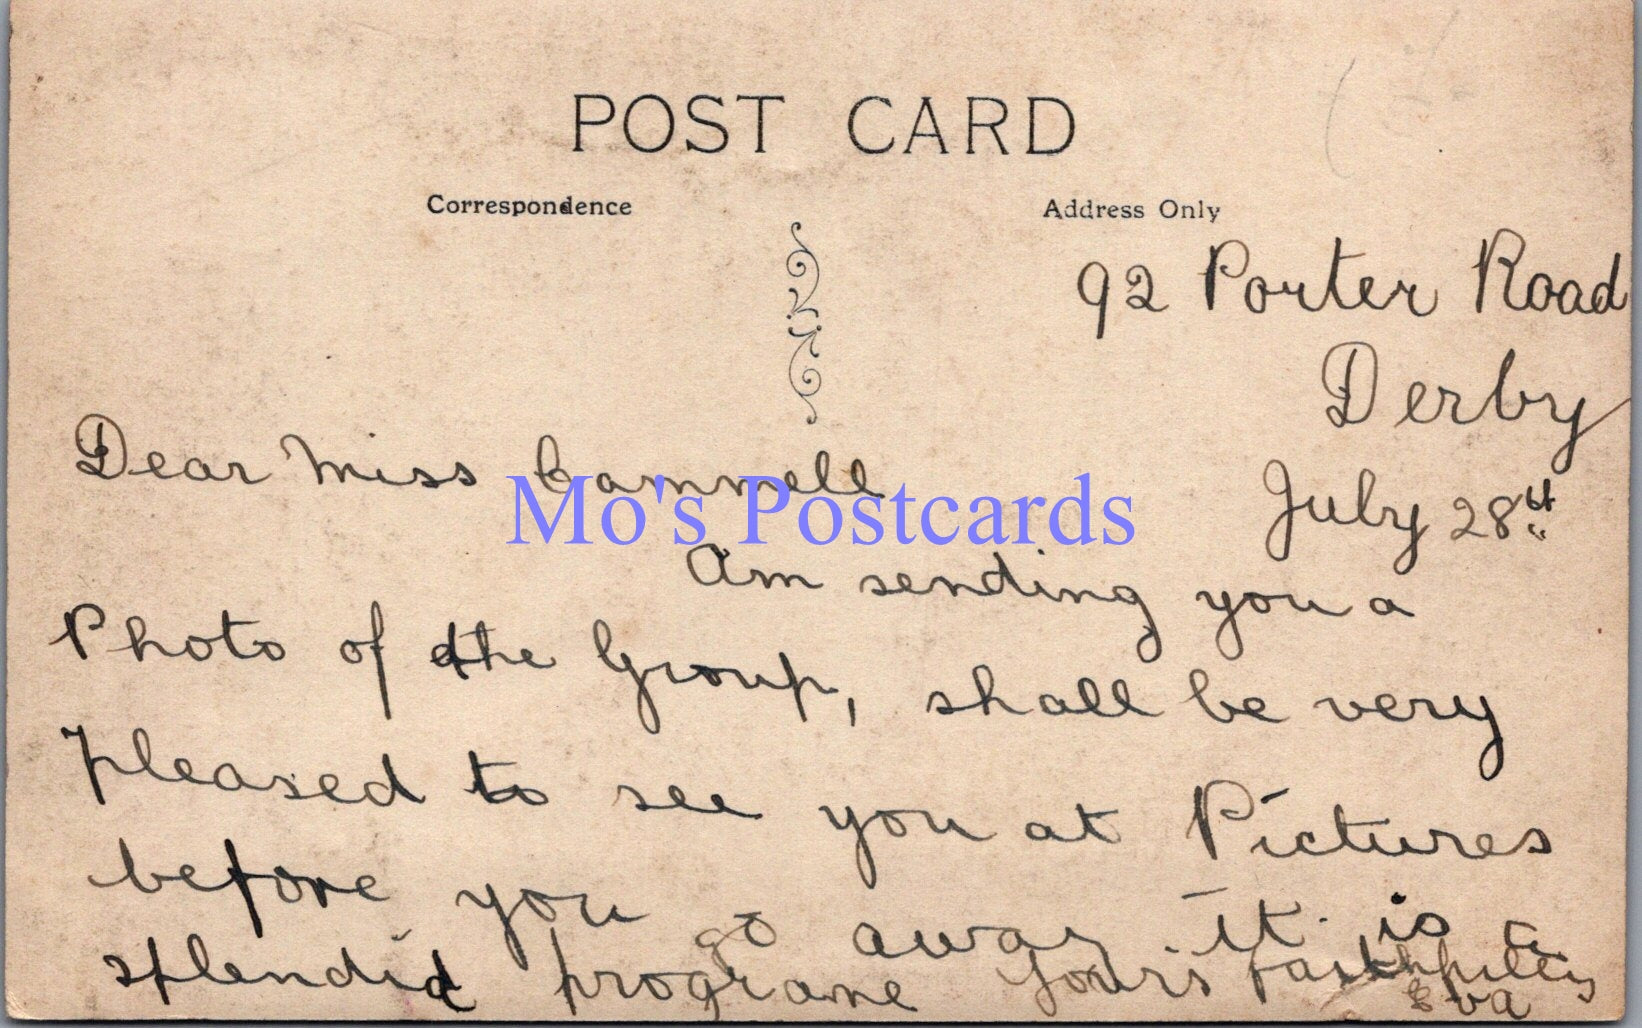 POST CARD
Correspondence
Address Only
92 Porter Road
Derby
July 28th
Dear Miss Cammell
Mo's Postcards
Am sending you a
Photo of the Group, shall be very
pleased to see you at Pictures
before you go away. it is
splendid programe Yours faithfully
Eva